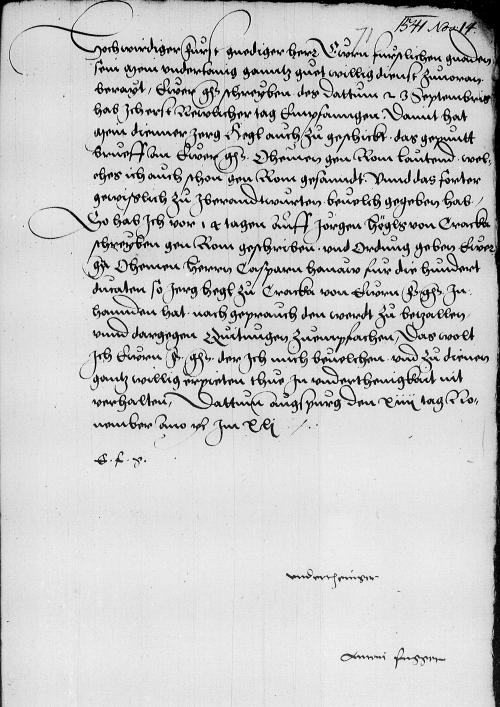 1541 Nov 14
71
Hochwirdiger Furst gnediger herr Ewrn furstlichen gnaden
sein mein undertenig gantz guet willig dienst zuvoran
berayt, Ewer gn schreyben des dattum 23 Septembris
hab Ich erst Newlicher tag Empfanngen. Damit hat
mein diennner Jerg Hegl auch zu geschickt das gepuntt
brueff an Ewer gn Ohemen gen Rom lautend, wel-
ches ich auch schon gen Rom gesanndt. Vnnd das forter
gewisslich zu Iberandtwurten bevelch gegeben hab,
So hab Ich vor 14 tagen auff Jorgen Högls von Cracka
schreyben gen Rom geschriben, und Ordnung geben Ewer
gn Ohemen, herrn Casparn hanaw fur die hundert
ducaten so Jerg hegl zu Cracka von Ewrn F gn In
hannden hat, nach geprauch den werdt zu betzallen
unnd dargegen Quitungen zuempfachen, Das wolt
Ich Ewrn F gn der Ich mich bevelchen, und zu dienen
gantz willig erpieten thue, In underthenigkait nit
verhalten, Dattum augspurg den xiiii tag No-
vember Im xli
E. f. g.
undertheniger
Antoni fugger